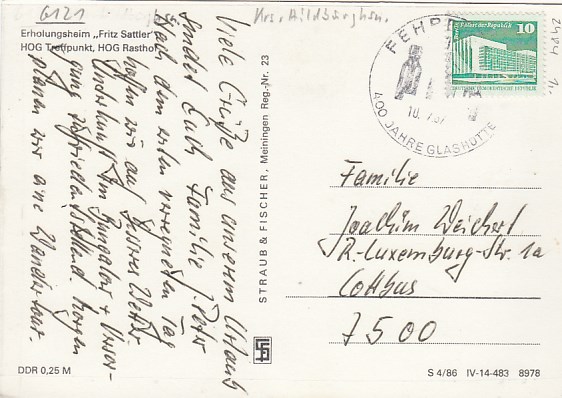 6121
Krs. Hildburghsn.
Erholungsheim „Fritz Sattler"
HOG Treffpunkt, HOG Rasthof
Viele Grüße aus unserem Urlaub
sendet Euch Familie J. Peter
Nach dem ersten verregneten Tag
hoffen wir auf besseres Wetter
Unterkunft im Bungalow + Versor-
gung zufriedenstellend. Morgen
planen wir eine Wandertour.
STRAUB & FISCHER, Meiningen Reg.-Nr. 23
FEHR
400 JAHRE GLASHÜTTE
Palast der Republik 10
DEUTSCHE DEMOKRATISCHE REPUBLIK
2484
Familie
Joachim Weichert
R.-Luxemburg-Str. 1a
Cottbus
7500
DDR 0,25 M
S 4/86 IV-14-483 8978